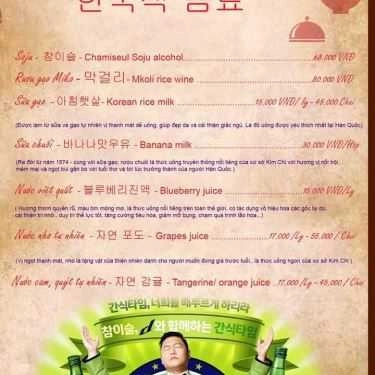 한국식 음료
Soju - 참이슬 - Chamiseul Soju alcohol VND
Rượu gạo Miko - 막걸리 - Mkoli rice wine 80.000 VND
Sữa gạo - 아침햇살 - Korean rice milk 15.000 VND/ Ly - 45.000 Chai
(Được làm từ sữa và gạo tự nhiên vị thanh mát dễ uống, giúp đẹp da và cải thiện giấc ngủ. Là đồ uống được yêu thích nhất tại Hàn Quốc)
Sữa chuối - 바나나맛우유 - Banana milk 30.000 VND/Hộp
(Ra đời từ năm 1974 - cùng với sữa gạo; rượu chuối là thức uống truyền thống nổi tiếng của xứ sở Kim Chi với hương vị nổi trội,
mềm mại và ngọt bùi gắn bó với tuổi thơ và trí lúc trưởng thành của người Hàn Quốc.)
Nước việt quất - 블루베리진액 - Blueberry juice 15.000 VND/Ly
( Hương thơm quyến rũ, màu tím mộng mơ, là thức uống nổi tiếng trên toàn thế giới, có tác dụng vô hiệu hóa các gốc tự do,
cải thiện trí nhớ , duy trì thể lực tốt, tăng cường tiêu hóa, giảm mỡ bụng, chậm quá trình lão hóa...)
Nước nho tự nhiên - 자연 포도 - Grapes juice 17.000 /Ly - 55.000 / Chai
(Vị ngọt thanh mát, nho là tặng vật của thiên nhiên dành cho người muốn đừng già trước tuổi... là thức uống ngon của xứ sở Kim Chi ).
Nước cam, quýt tự nhiên - 자연 감귤 - Tangerine/ orange juice 17.000 /Ly - 45.000 / Chai
간식타임, 너희를 배부르게 하리라
참이슬, d와 함께하는 간식타임